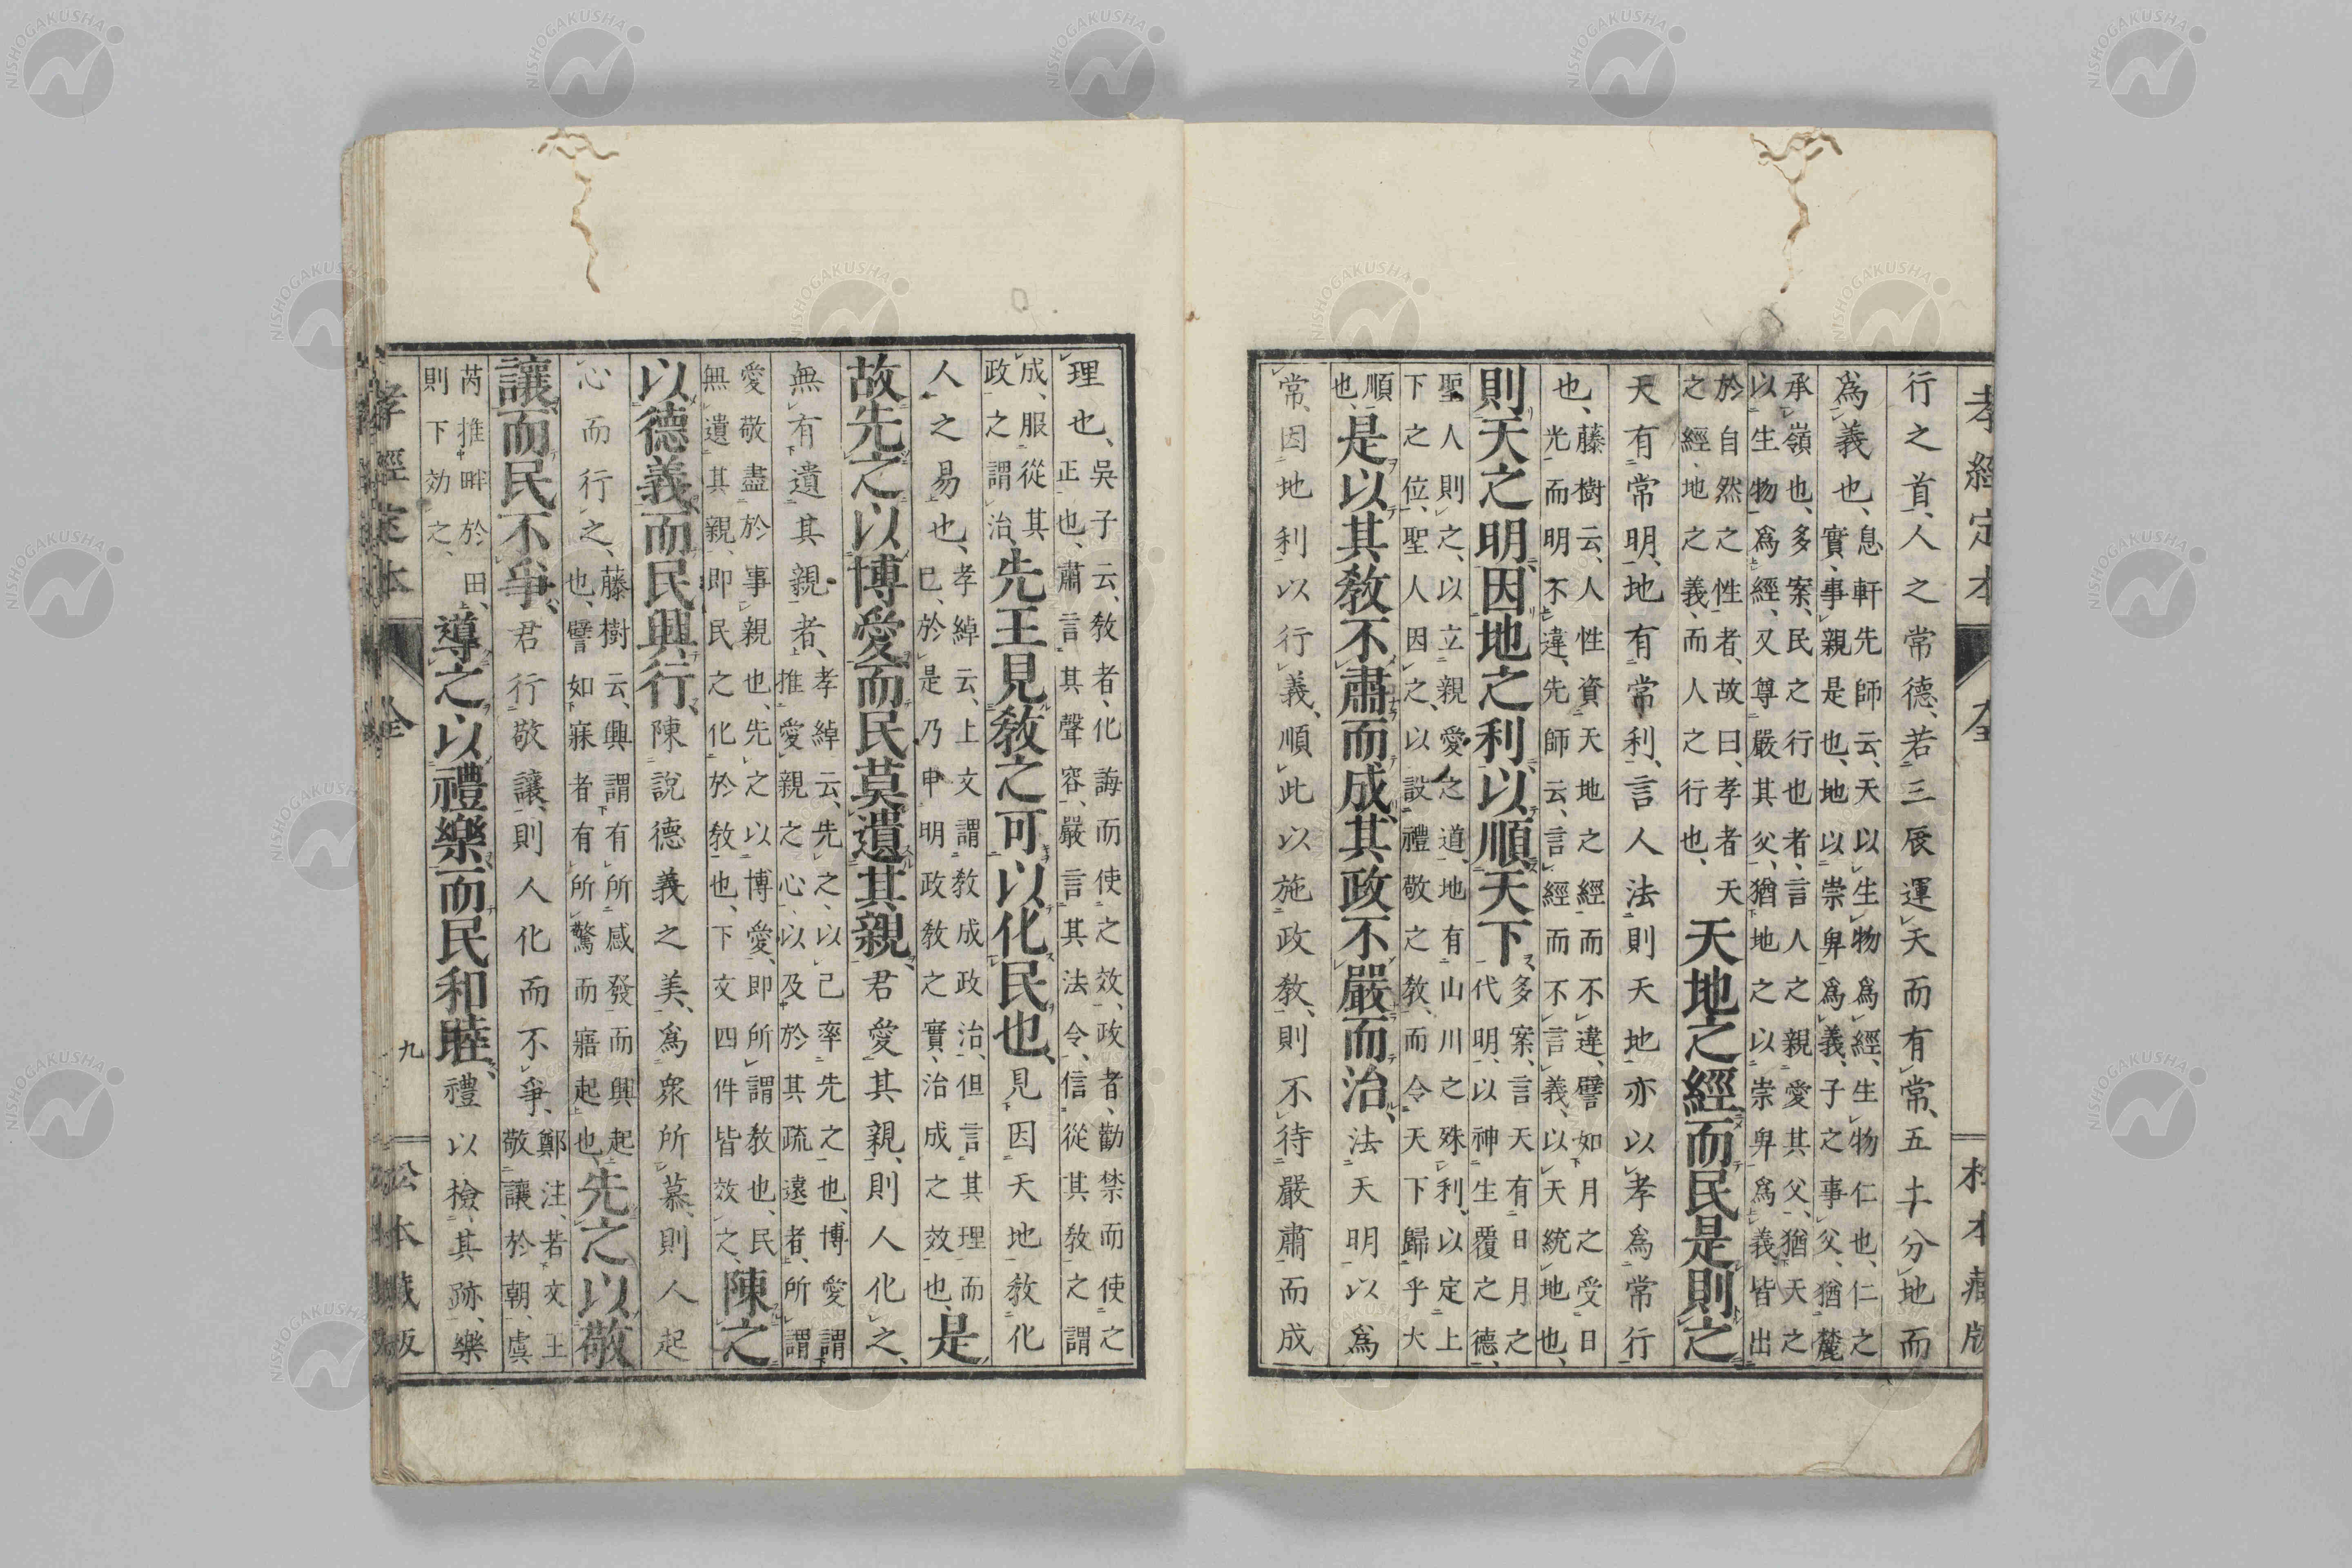 孝經定本
全
松本藏版
行之首、人之常德、若三辰運天而有常、五土分地而
爲義也、息軒先師云、天以生物爲經、生物仁也、仁之
實、事親是也、地以崇卑爲義、子之事父、猶麓
承嶺也、多案、民之行也者、言人之親愛其父、猶天之
以生物爲經、又尊嚴其父、猶地之以崇卑爲義、皆出
於自然之性者、故曰、孝者天
之經、地之義、而人之行也、天地之經而民是則之
天有常明、地有常利、言人法則天地亦以孝爲常行
也、藤樹云、人性資天地之經而不違、譬如月之受日
光而明不違、先師云、言經而不言義、以天統地也、
則天之明、因地之利、以順天下、多案、言天有日月之
代明、以神生覆之德、
聖人則之、以立親愛之道、地有山川之殊利、以定上
下之位、聖人因之、以設禮敬之教、而令天下歸乎大
順也、是以其教不肅而成、其政不嚴而治、法天明以爲
常、因地利以行義、順此以施政教、則不待嚴肅而成
理也、吳子云、教者、化誨而使之效、政者、勸禁而使之
正也、肅言其聲容、嚴言其法令、信從其教之謂
成、服從其
政之謂治、先王見教之可以化民也、見因天地教化
人之易也、孝綽云、上文謂教成政治、但言其理而
已、於是乃申明政教之實、治成之效也、是
故先之以博愛而民莫遺其親、君愛其親、則人化之、
無有遺其親者、孝綽云、先之、以己率先之也、博愛謂
推愛親之心、以及於其疏遠者、所謂
愛敬盡於事親也、先之以博愛、即所謂教也、民
無遺其親、即民之化於教也、下文四件皆效之、陳之
以德義而民興行、陳說德義之美、爲眾所慕、則人起
心而行之、藤樹云、興謂有所感發而興起
也、譬如寐者有所驚而寤起也、先之以敬
讓而民不爭、君行敬讓、則人化而不爭、鄭注、若文王
敬讓於朝、虞
芮推畔於田、
則下効之、導之以禮樂而民和睦、禮以檢其跡、樂
孝經定本
全
九
松本藏版
NISHOGAKUSHA